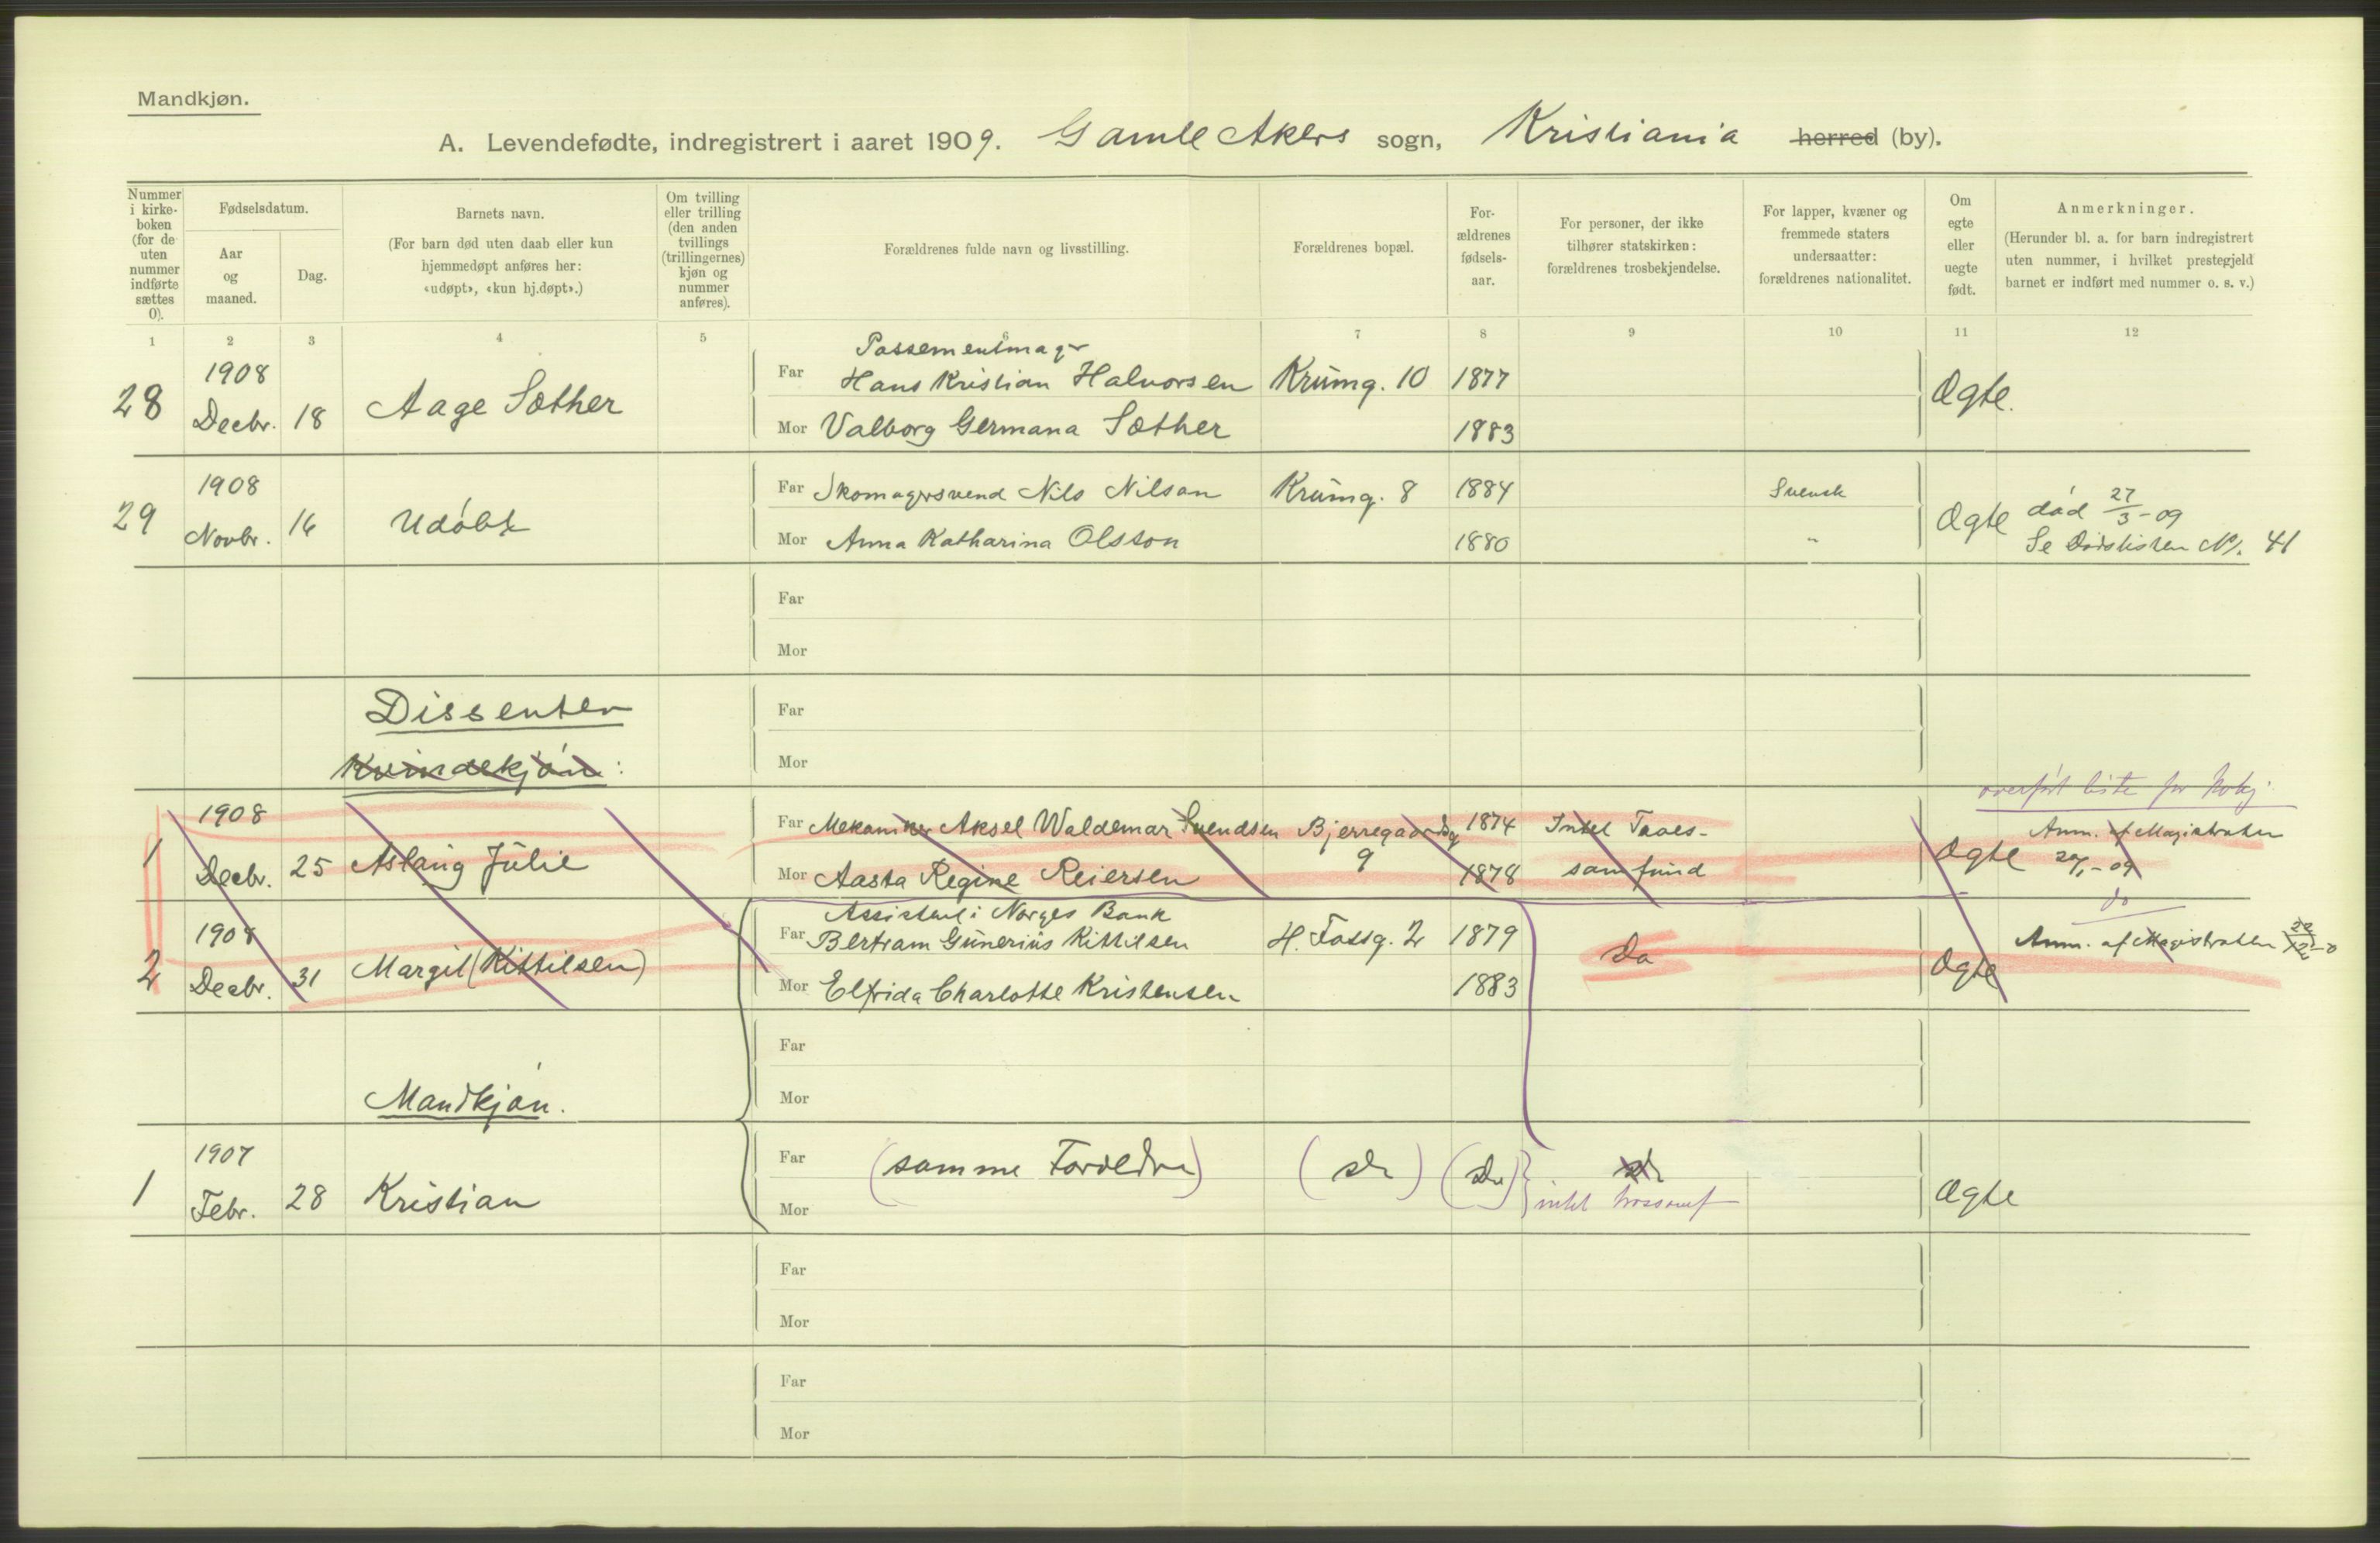 Mandkjøn.
A. Levendefødte, indregistrert i aaret 1909. Gamle Akers sogn, Kristiania herred (by).
Nummer i kirke- boken (for de uten nummer indførte sættes 0).
Fødselsdatum.
Aar og maaned.
Dag.
Barnets navn.
(For barn død uten daab eller kun hjemmedøpt anføres her: «udøpt», «kun hj.døpt».)
Om tvilling eller trilling (den anden tvillings (trillingernes) kjøn og nummer anføres).
Forældrenes fulde navn og livsstilling.
Forældrenes bopæl.
For- ældrenes fødsels- aar.
For personer, der ikke tilhører statskirken: forældrenes trosbekjendelse.
For lapper, kvæner og fremmede staters undersaatter: forældrenes nationalitet.
Om egte eller uegte født.
Anmerkninger.
(Herunder bl. a. for barn indregistrert uten nummer, i hvilket prestegjeld barnet er indført med nummer o. s. v.)
1 2 3 4 5 6 7 8 9 10 11 12
28 1908 Decbr. 18 Aage Sæther
Passementmagr
Far Hans Kristian Halvorsen Krumg. 10 1877 Ægte.
Mor Valborg Germana Sæther 1883
29 1908 Novbr. 16 Udøbt
Far Skomagersvend Nils Nilson Krumg. 8 1884 Svensk Ægte død 27/3-09
Mor Anna Katharina Olsson 1880 " Se Dødslisten No. 41
Far
Mor
Dissenter
Far
Kvindekjøn:
Mor
overført liste for
1 1908 Decbr. 25 Aslaug Julie
Far Mekaniker Aksel Waldemar Svendsen Bjerregaardsg 9 1874 Intet Troes- Ægte Anm. af Magistraten
Mor Aasta Regine Reiersen 1878 samfund
do
2 1908 Decbr. 31 Margit (Kittilsen)
Assistent i Norges Bank
Far Bertram Gunerius Kittilsen H. Fossg. 2 1879 Do Ægte Anm. af Magistraten
Mor Elfrida Charlotte Kristensen 1883
Far
Mandkjøn.
Mor
1 1907 Febr. 28 Kristian
Far (samme Foreldre) (do) (do) do
Mor intet trossamf Ægte
Far
Mor
Far
Mor